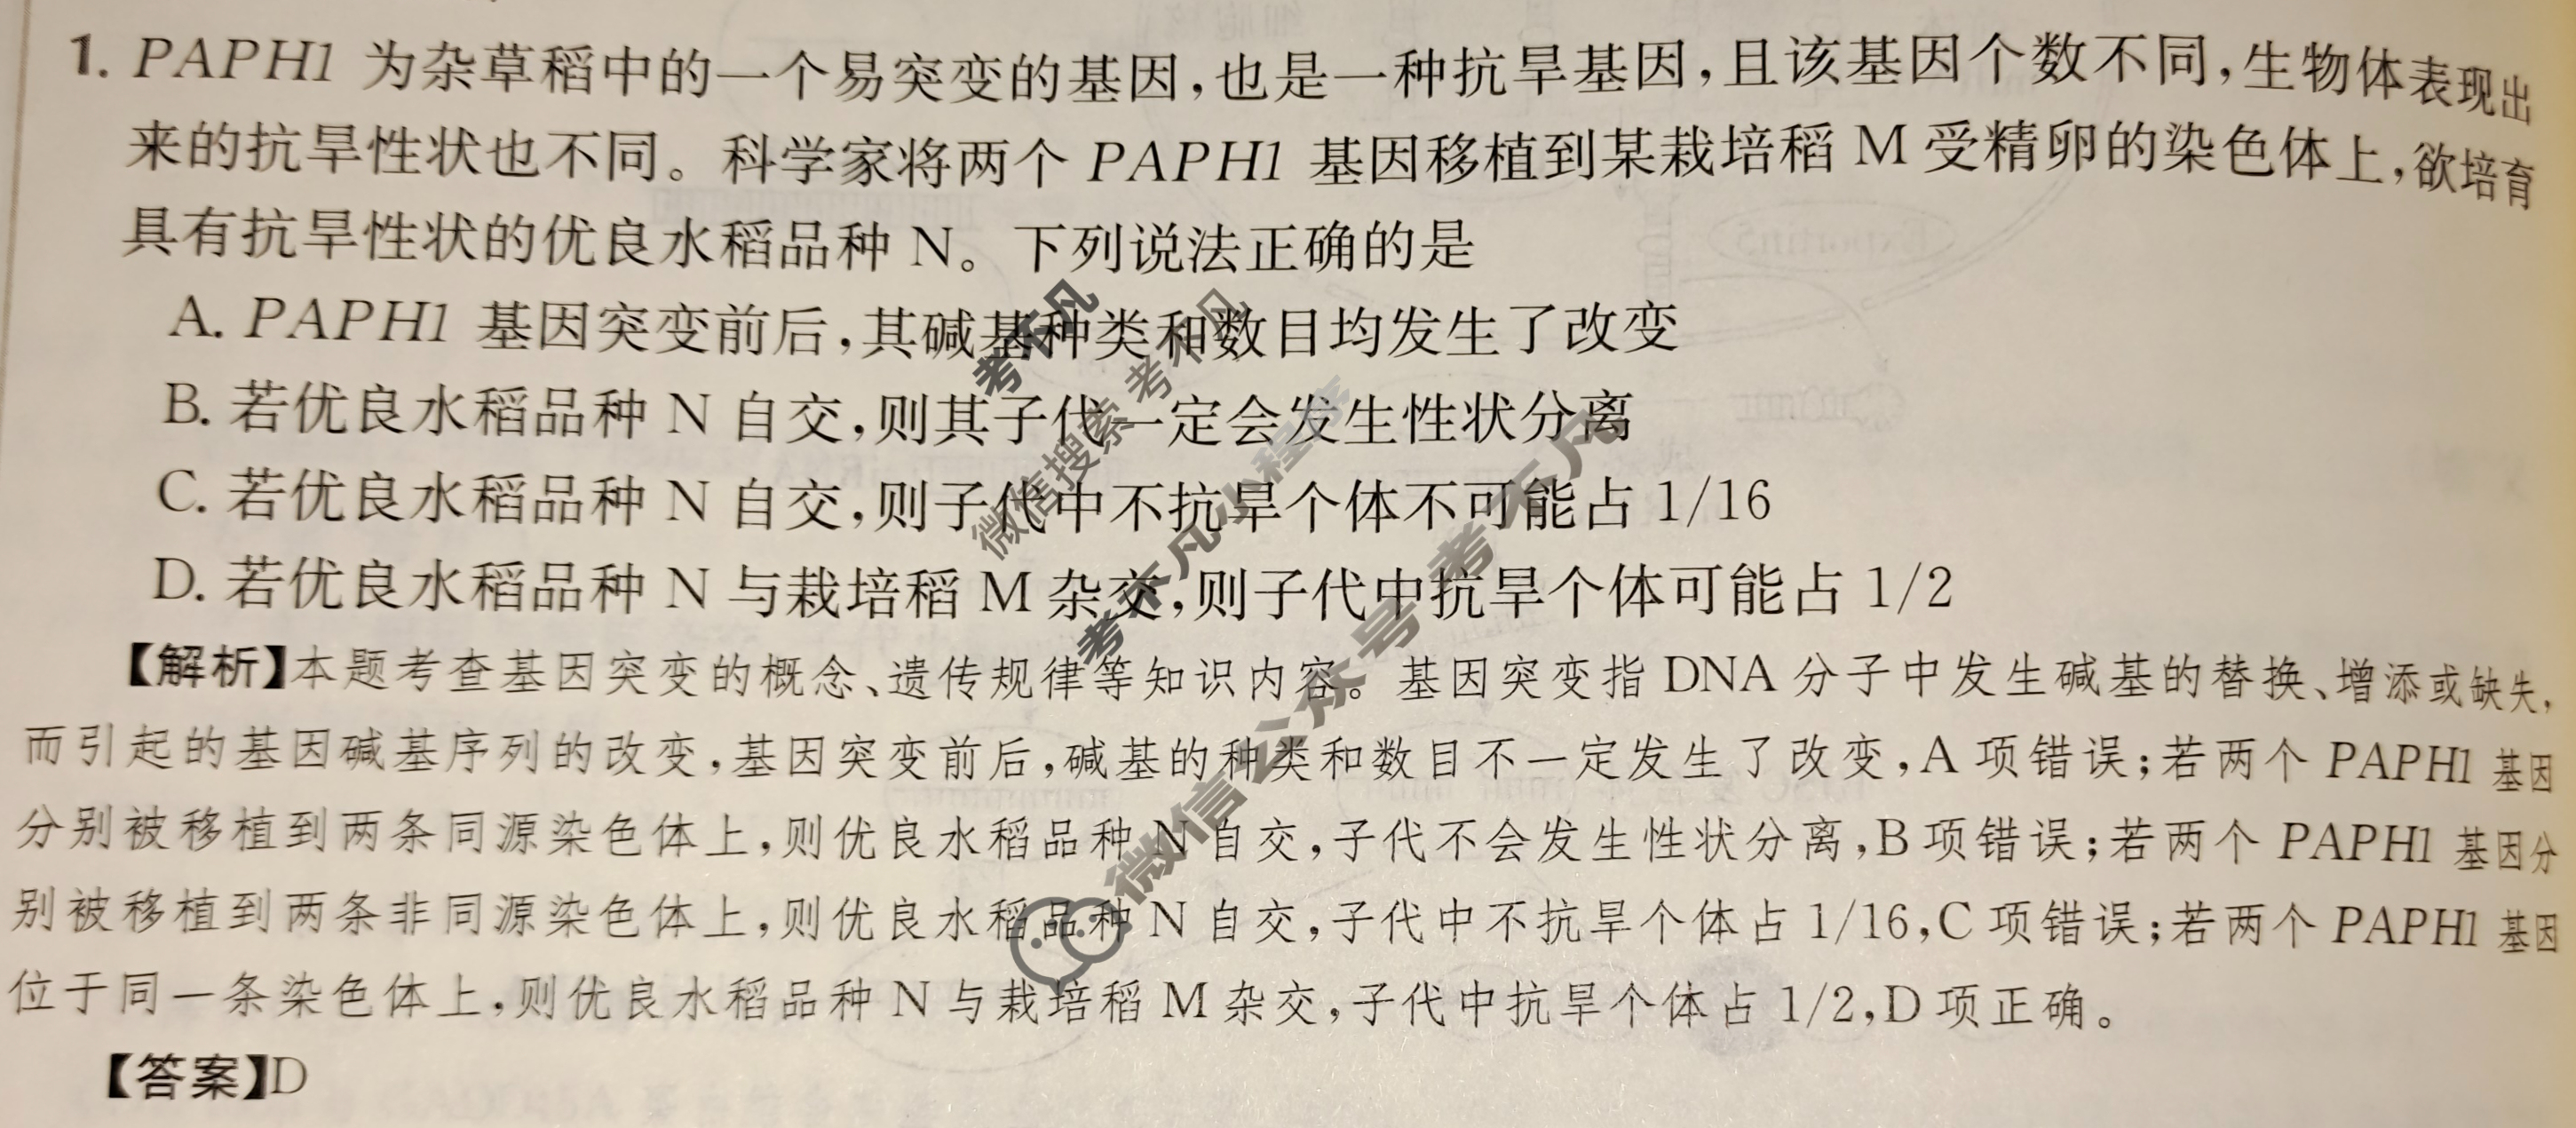 1. PAPH1 为杂草稻中的一个易突变的基因,也是一种抗旱基因,且该基因个数不同,生物体表现出
来的抗旱性状也不同。科学家将两个 PAPH1 基因移植到某栽培稻 M 受精卵的染色体上,欲培育
具有抗旱性状的优良水稻品种 N。下列说法正确的是
A. PAPH1 基因突变前后,其碱基种类和数目均发生了改变
B. 若优良水稻品种 N 自交,则其子代一定会发生性状分离
C. 若优良水稻品种 N 自交,则子代中不抗旱个体不可能占 1/16
D. 若优良水稻品种 N 与栽培稻 M 杂交,则子代中抗旱个体可能占 1/2
【解析】本题考查基因突变的概念、遗传规律等知识内容。基因突变指 DNA 分子中发生碱基的替换、增添或缺失,
而引起的基因碱基序列的改变,基因突变前后,碱基的种类和数目不一定发生了改变,A 项错误;若两个 PAPH1 基因
分别被移植到两条同源染色体上,则优良水稻品种 N 自交,子代不会发生性状分离,B 项错误;若两个 PAPH1 基因分
别被移植到两条非同源染色体上,则优良水稻品种 N 自交,子代中不抗旱个体占 1/16,C 项错误;若两个 PAPH1 基因
位于同一条染色体上,则优良水稻品种 N 与栽培稻 M 杂交,子代中抗旱个体占 1/2,D 项正确。
【答案】D
考不凡
微信搜索 考不凡
考不凡小程序
微信公众号 考不凡